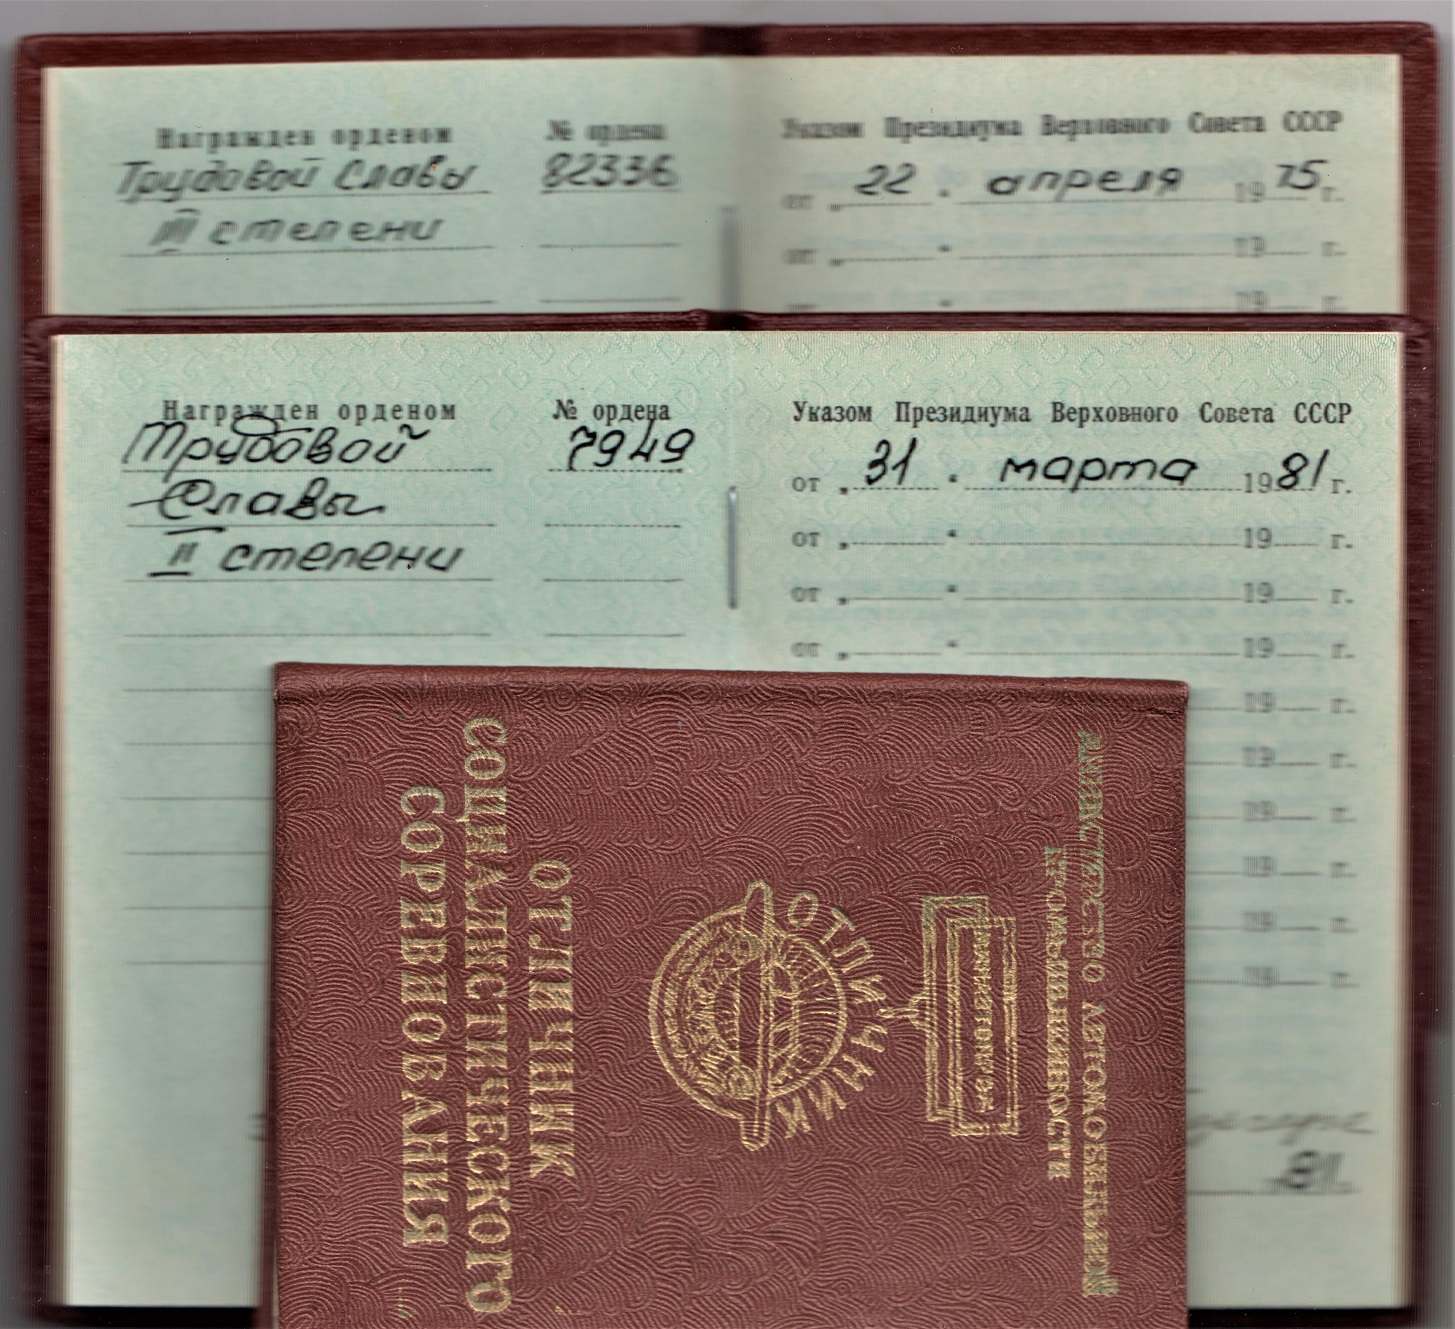 Награжден орденом № ордена Указом Президиума Верховного Совета СССР
Трудовой Славы 82336 от „ 22 “ апреля 19 75 г.
III степени от „ “ 19 г.
19 г.
Награжден орденом № ордена Указом Президиума Верховного Совета СССР
Трудовой 7949 от „ 31 “ марта 19 81 г.
Славы от „ “ 19 г.
II степени от „ “ 19 г.
от „ “ 19 г.
19 г.
19 г.
19 г.
19 г.
19 г.
19 г.
81г.
МИНИСТЕРСТВО АВТОМОБИЛЬНОЙ
ПРОМЫШЛЕННОСТИ
ОТЛИЧНИК
ОТЛИЧНИК
СОЦИАЛИСТИЧЕСКОГО
СОРЕВНОВАНИЯ